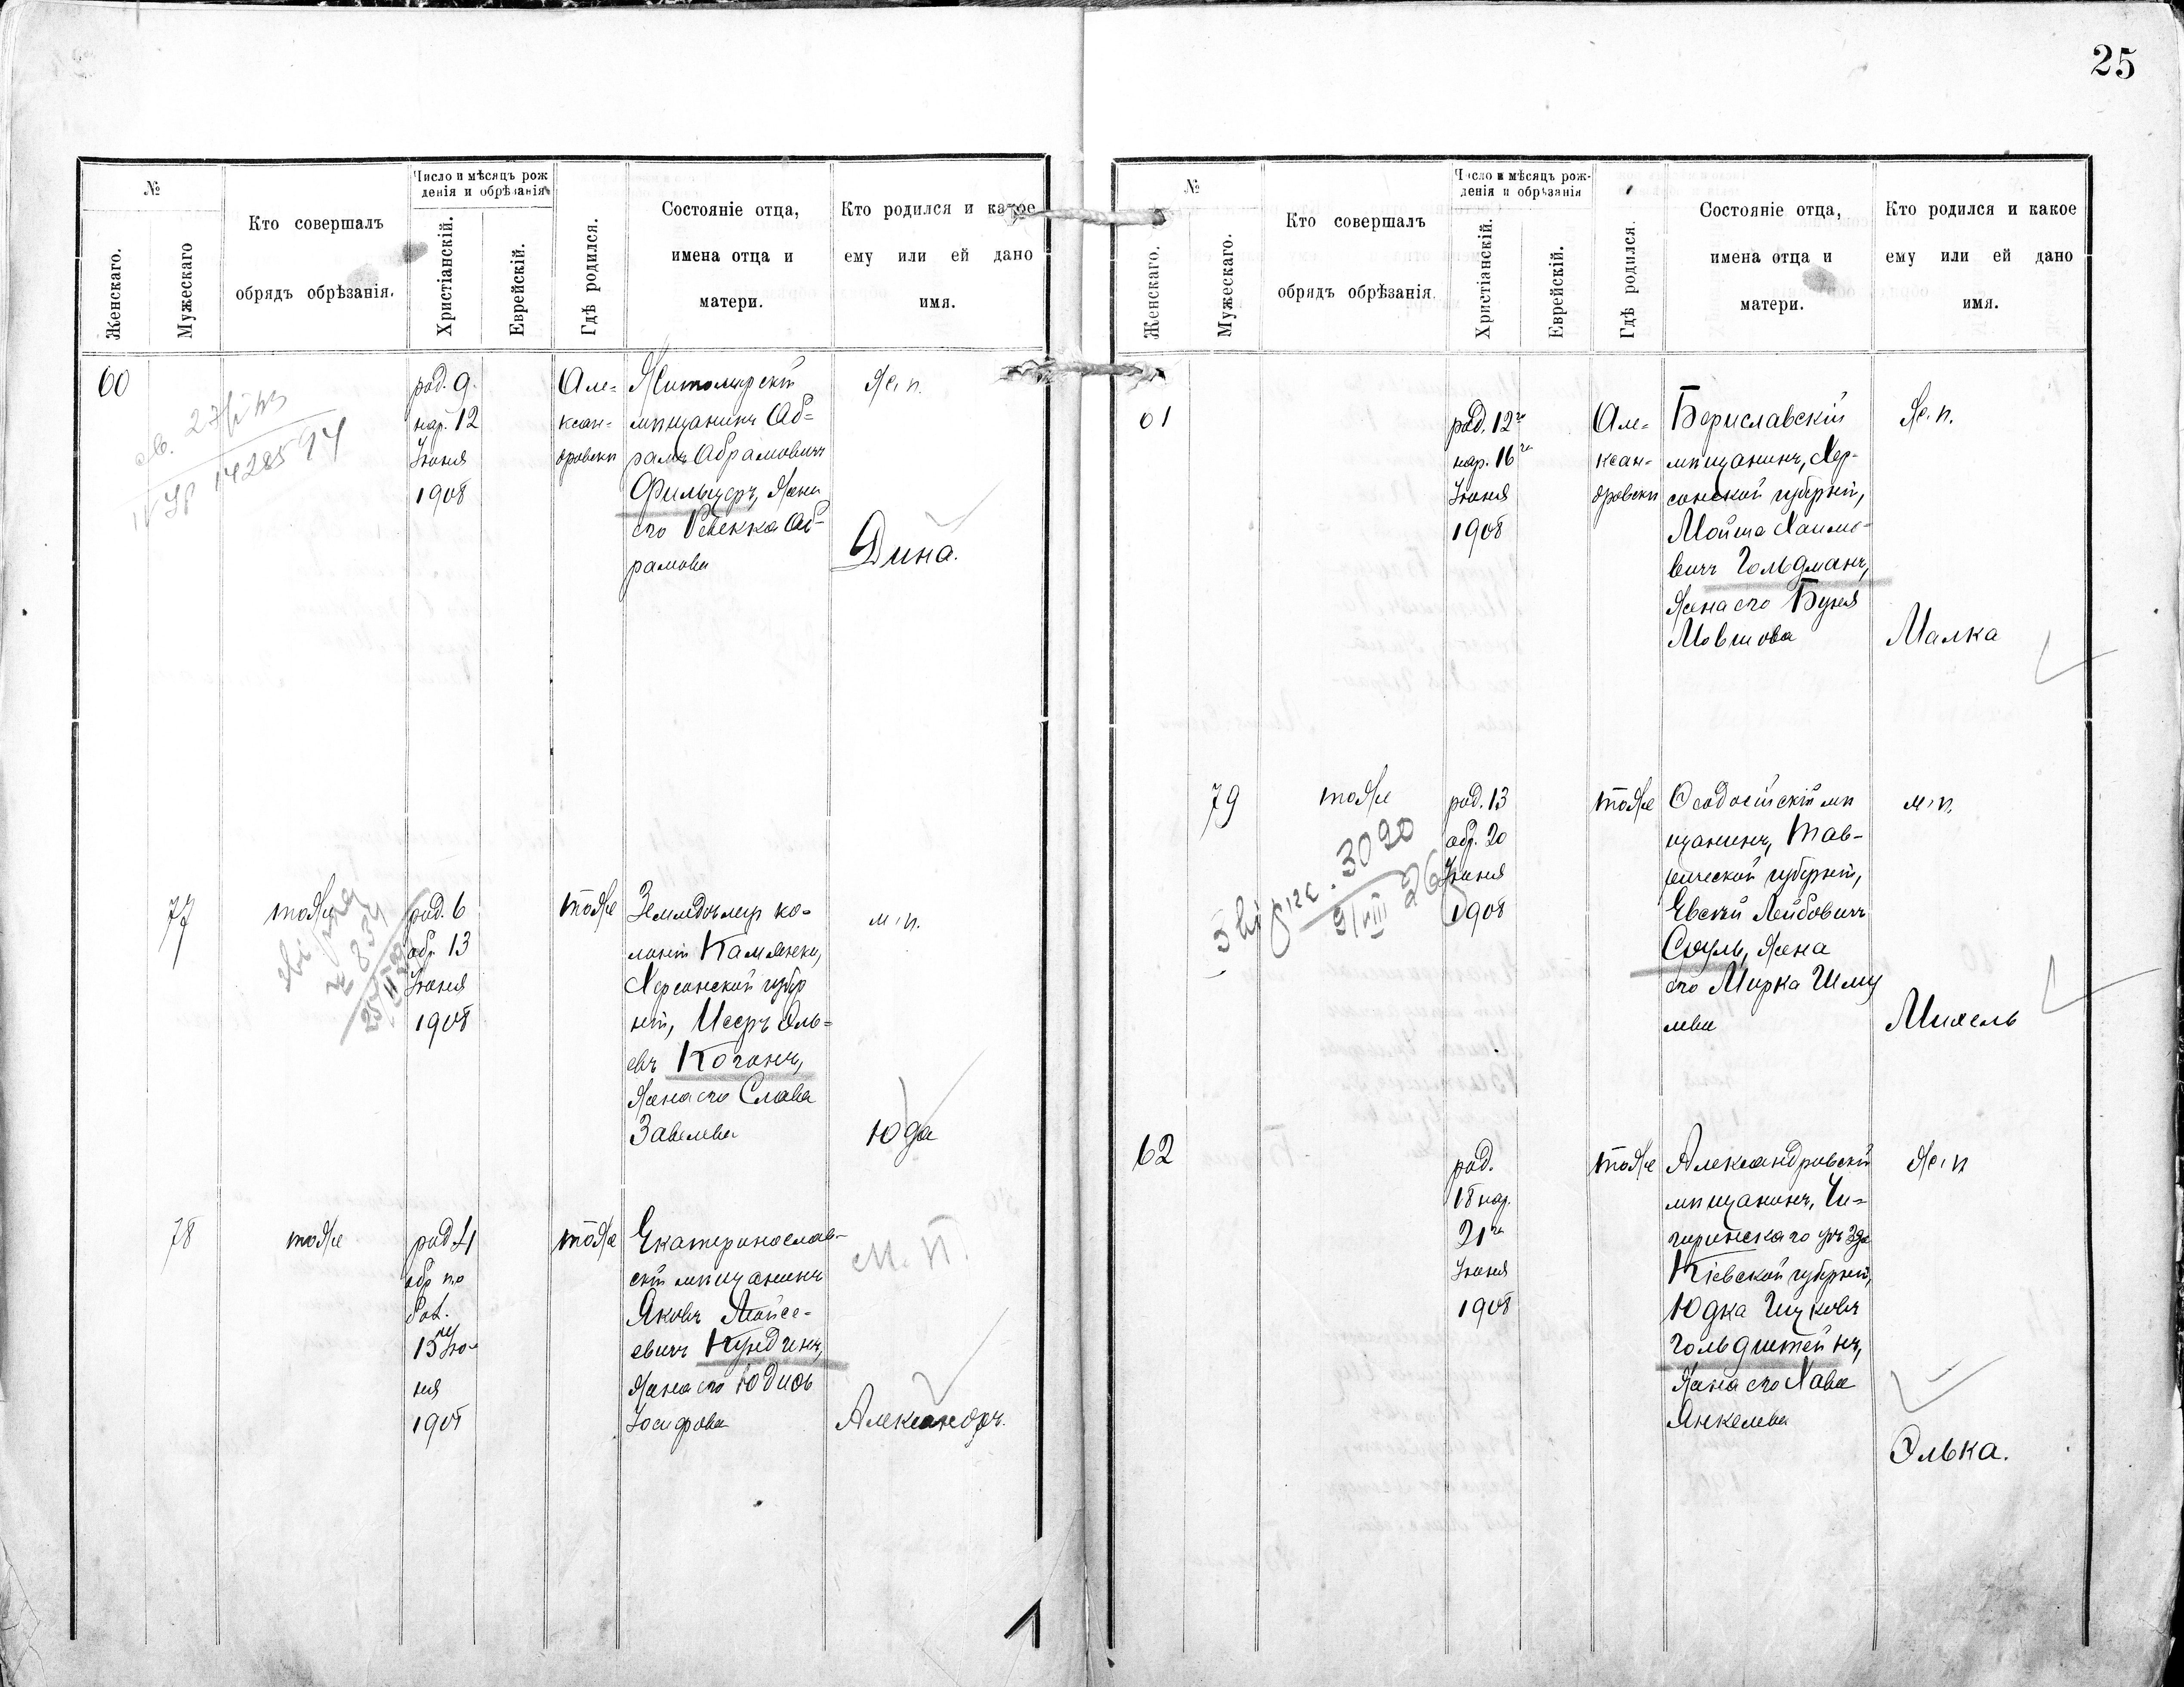 25
№
Женскаго.
Мужескаго
Кто совершалъ
обрядъ обрѣзанія.
Число и мѣсяцъ рож
денія и обрѣзанія
Христіанскій.
Еврейскій.
Гдѣ родился.
Состояніе отца,
имена отца и
матери.
Кто родился и какое
ему или ей дано
имя.
60
род. 9.
нар. 12
Іюня
1908
Але-
ксан-
дровски
Житомирскій
мѣщанинъ Аб-
рамъ Абрамовичъ
Фильцеръ, Жена
его Ребекка Аб-
рамова
Ж. п.
Дина.
77
тоже
род. 6
обр. 13
Іюня
1908
тоже
Земледѣлецъ ко-
лоніи Камянки,
Херсонской губер
ніи, Исеръ Эль-
евъ Коганъ,
Жена его Слава
Завелева
м. п.
Юда
78
тоже
род. 4
обр по
бол.
15 Ію-
ня
1908
тоже
Екатеринослав-
скій мѣщанинъ
Яковъ Мойсе-
евичъ Кундинъ,
Жена его Юдись
Іосифова
м. п.
Александръ.
№
Женскаго.
Мужескаго.
Кто совершалъ
обрядъ обрѣзанія.
Число и мѣсяцъ рож-
денія и обрѣзанія
Христіанскій.
Еврейскій.
Гдѣ родился.
Состояніе отца,
имена отца и
матери.
Кто родился и какое
ему или ей дано
имя.
61
род. 12го
нар. 16го
Іюня
1908
Але-
ксан-
дровски
Бериславскій
мѣщанинъ, Хер-
сонской губерніи,
Мойше Хаимо-
вичъ Гольдманъ,
Жена его Буня
Мовшова
Ж. п.
Малка
79
тоже
род. 13
обр. 20
Іюня
1908
тоже
Ѳеодосійскій мѣ
щанинъ, Тав-
рической губерніи,
Евсей Лейбовичъ
Соуль, Жена
его Мирка Шму
лева
м. п.
Михель
3090
62
род.
18 нар.
21го
Іюня
1908
тоже
Александровскій
мѣщанинъ, Чи-
гиринскаго уѣзда
Кіевской губерніи,
Юдка Ицковъ
Гольдштейнъ,
Жена его Хава
Янкелева
Ж. п
Элька.